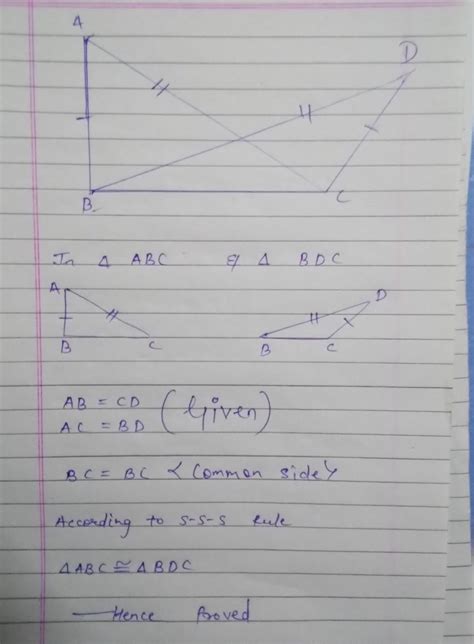 A
D
B
C
In Δ ABC & Δ BDC
A
D
B
C
B
C
AB = CD (Given)
AC = BD
BC = BC < Common side >
According to S-S-S Rule
ΔABC ≅ ΔBDC
— Hence Proved